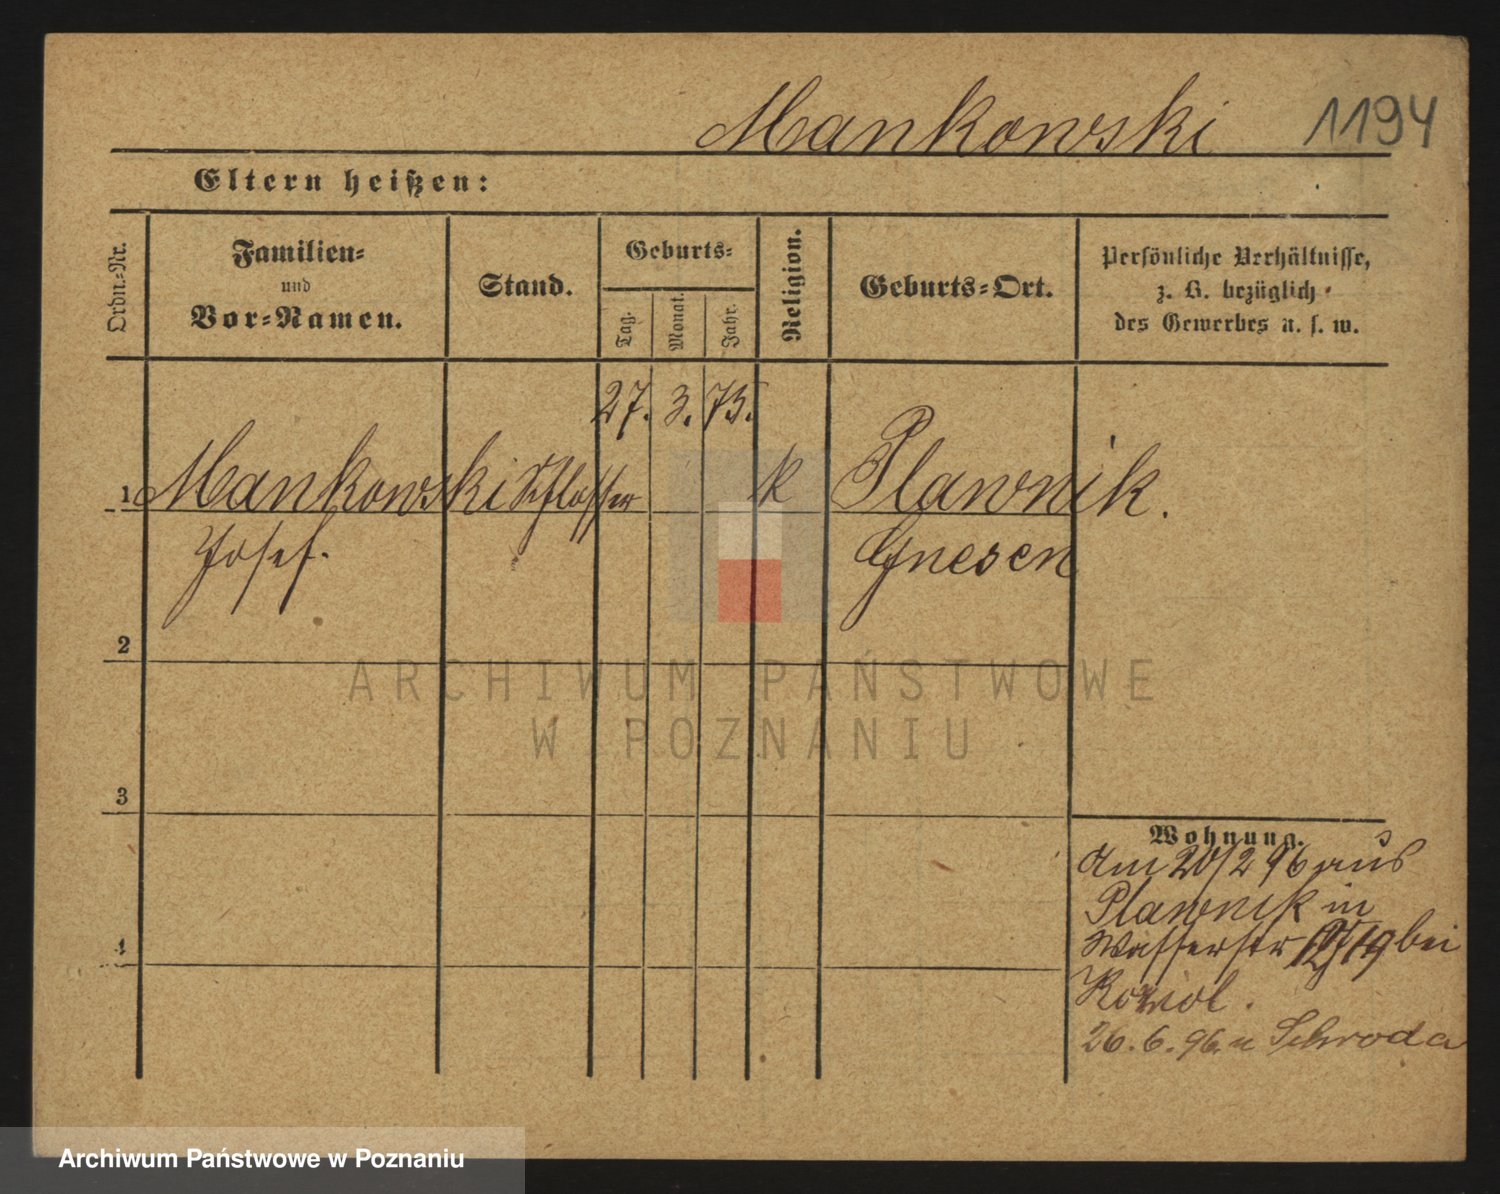 Mankowski 1194
Eltern heißen:
Ordn.-Nr.
Familien-
und
Vor-Namen.
Stand.
Geburts-
Tag.
Monat.
Jahr.
Religion.
Geburts-Ort.
Persönliche Verhältnisse,
z. B. bezüglich
des Gewerbes u. s. w.
27. 3. 75.
1 Mankowski Schlosser k Plawnik.
Josef. Gnesen
2
ARCHIWUM PAŃSTWOWE
W POZNANIU
3
Wohnung.
Am 20/2 96 aus
Plawnik in
4 Wasserstr 19 bei
Koziol.
26. 6. 96. n Schroda
Archiwum Państwowe w Poznaniu